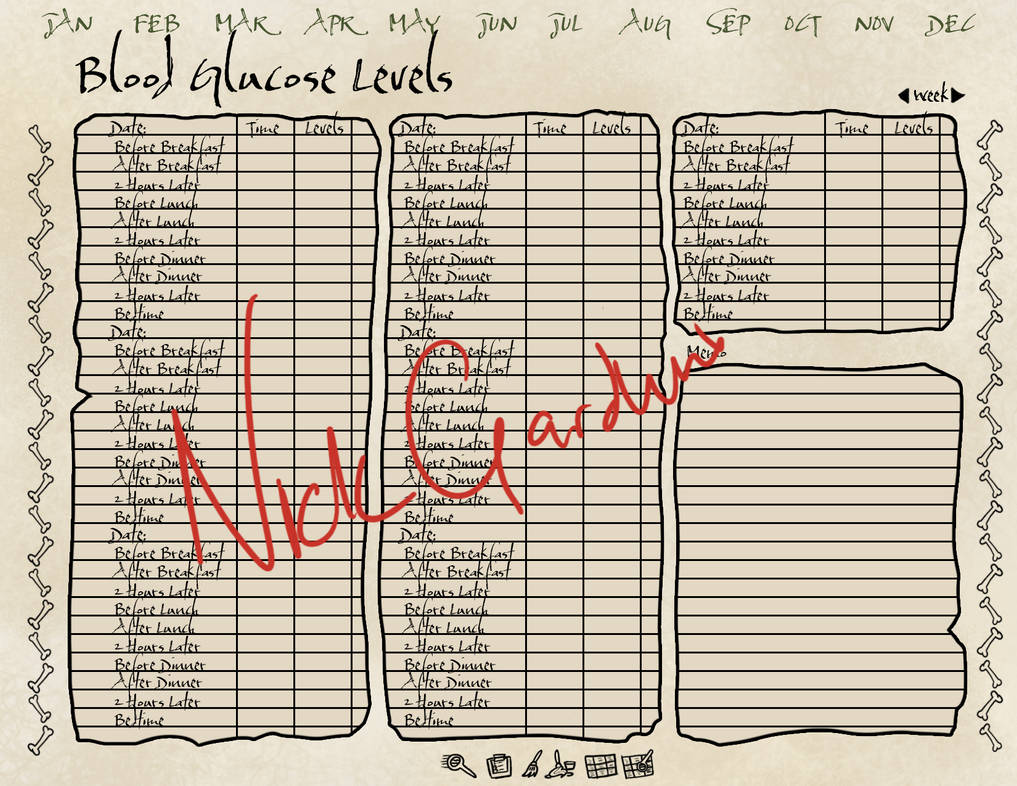 JAN FEB MAR APR MAY JUN JUL AUG SEP OCT NOV DEC
Blood Glucose Levels
week
Date: Time Levels
Before Breakfast
After Breakfast
2 Hours Later
Before Lunch
After Lunch
2 Hours Later
Before Dinner
After Dinner
2 Hours Later
Bestime
Date:
Before Breakfast
After Breakfast
2 Hours Later
Before Lunch
After Lunch
2 Hours Later
Before Dinner
After Dinner
2 Hours Later
Bestime
Date:
Before Breakfast
After Breakfast
2 Hours Later
Before Lunch
After Lunch
2 Hours Later
Before Dinner
After Dinner
2 Hours Later
Bestime
Date: Time Levels
Before Breakfast
After Breakfast
2 Hours Later
Before Lunch
After Lunch
2 Hours Later
Before Dinner
After Dinner
2 Hours Later
Bestime
Date:
Before Breakfast
After Breakfast
2 Hours Later
Before Lunch
After Lunch
2 Hours Later
Before Dinner
After Dinner
2 Hours Later
Bestime
Date:
Before Breakfast
After Breakfast
2 Hours Later
Before Lunch
After Lunch
2 Hours Later
Before Dinner
After Dinner
2 Hours Later
Bestime
Date: Time Levels
Before Breakfast
After Breakfast
2 Hours Later
Before Lunch
After Lunch
2 Hours Later
Before Dinner
After Dinner
2 Hours Later
Bestime
Memo
Nick